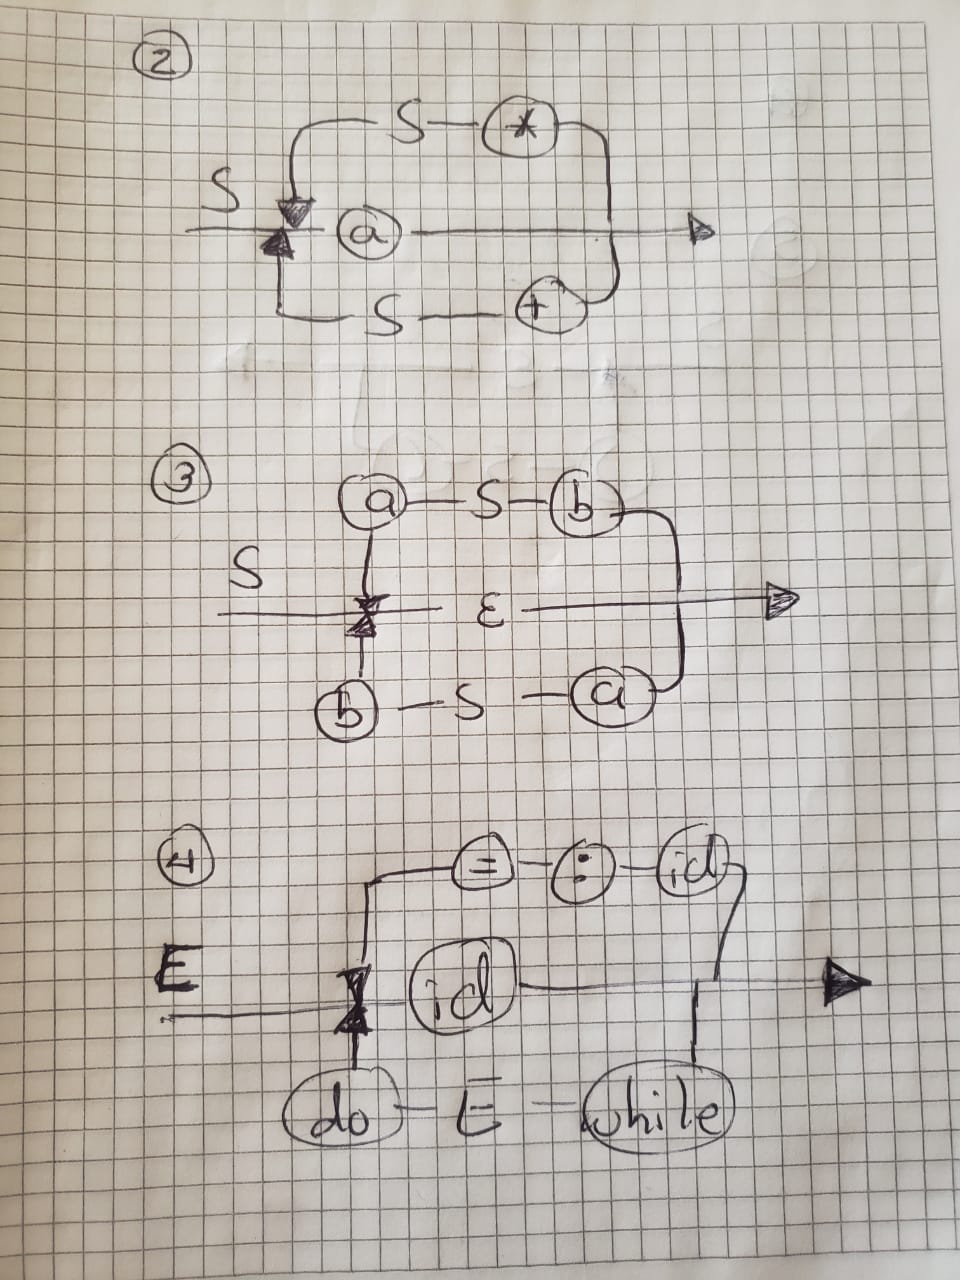 2
S *
S
a
S +
3
a S b
S
ε
b S a
4
= : id
E
id
do E while